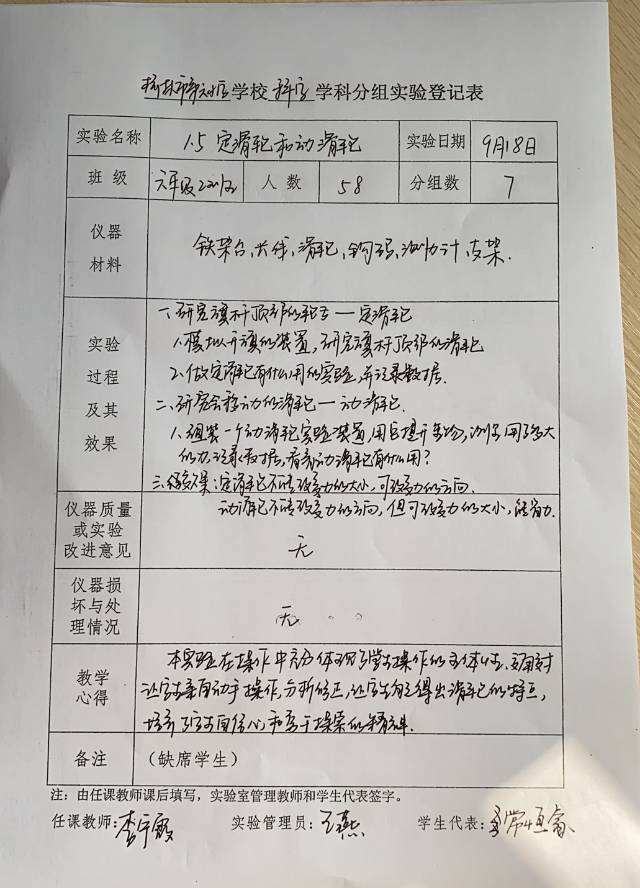 学校 科学 学科分组实验登记表
实验名称 1.5 定滑轮和动滑轮 实验日期 9月18日
班 级 六年级 人 数 58 分组数 7
仪器材料 铁架台、长线、滑轮、钩码、测力计、支架.
实验过程及其效果
一、研究旗杆顶部的 — 定滑轮
1.模拟升旗的装置,研究旗杆顶部的滑轮
2.做定滑轮有什么用的实验,并记录数据.
二、研究会移动的滑轮 — 动滑轮.
1.组装一个动滑轮实验装置,用它提升重物,测了用了多大
的力.记录数据,看看动滑轮有什么用?
三.效果:定滑轮不能改变力的大小,可改变力的方向.
动滑轮不能改变力的方向,但可改变力的大小,能省力.
仪器质量或实验改进意见 无
仪器损坏与处理情况 无
教学心得
本实验在操作中充分体现了学生操作的主体性.
让学生亲自动手操作,分析,让学生自己得出滑轮的特点,
培养了学生自信心和勇于探索的精神.
备注 (缺席学生)
注:由任课教师课后填写,实验室管理教师和学生代表签字。
任课教师:李 实验管理员:王燕 学生代表: